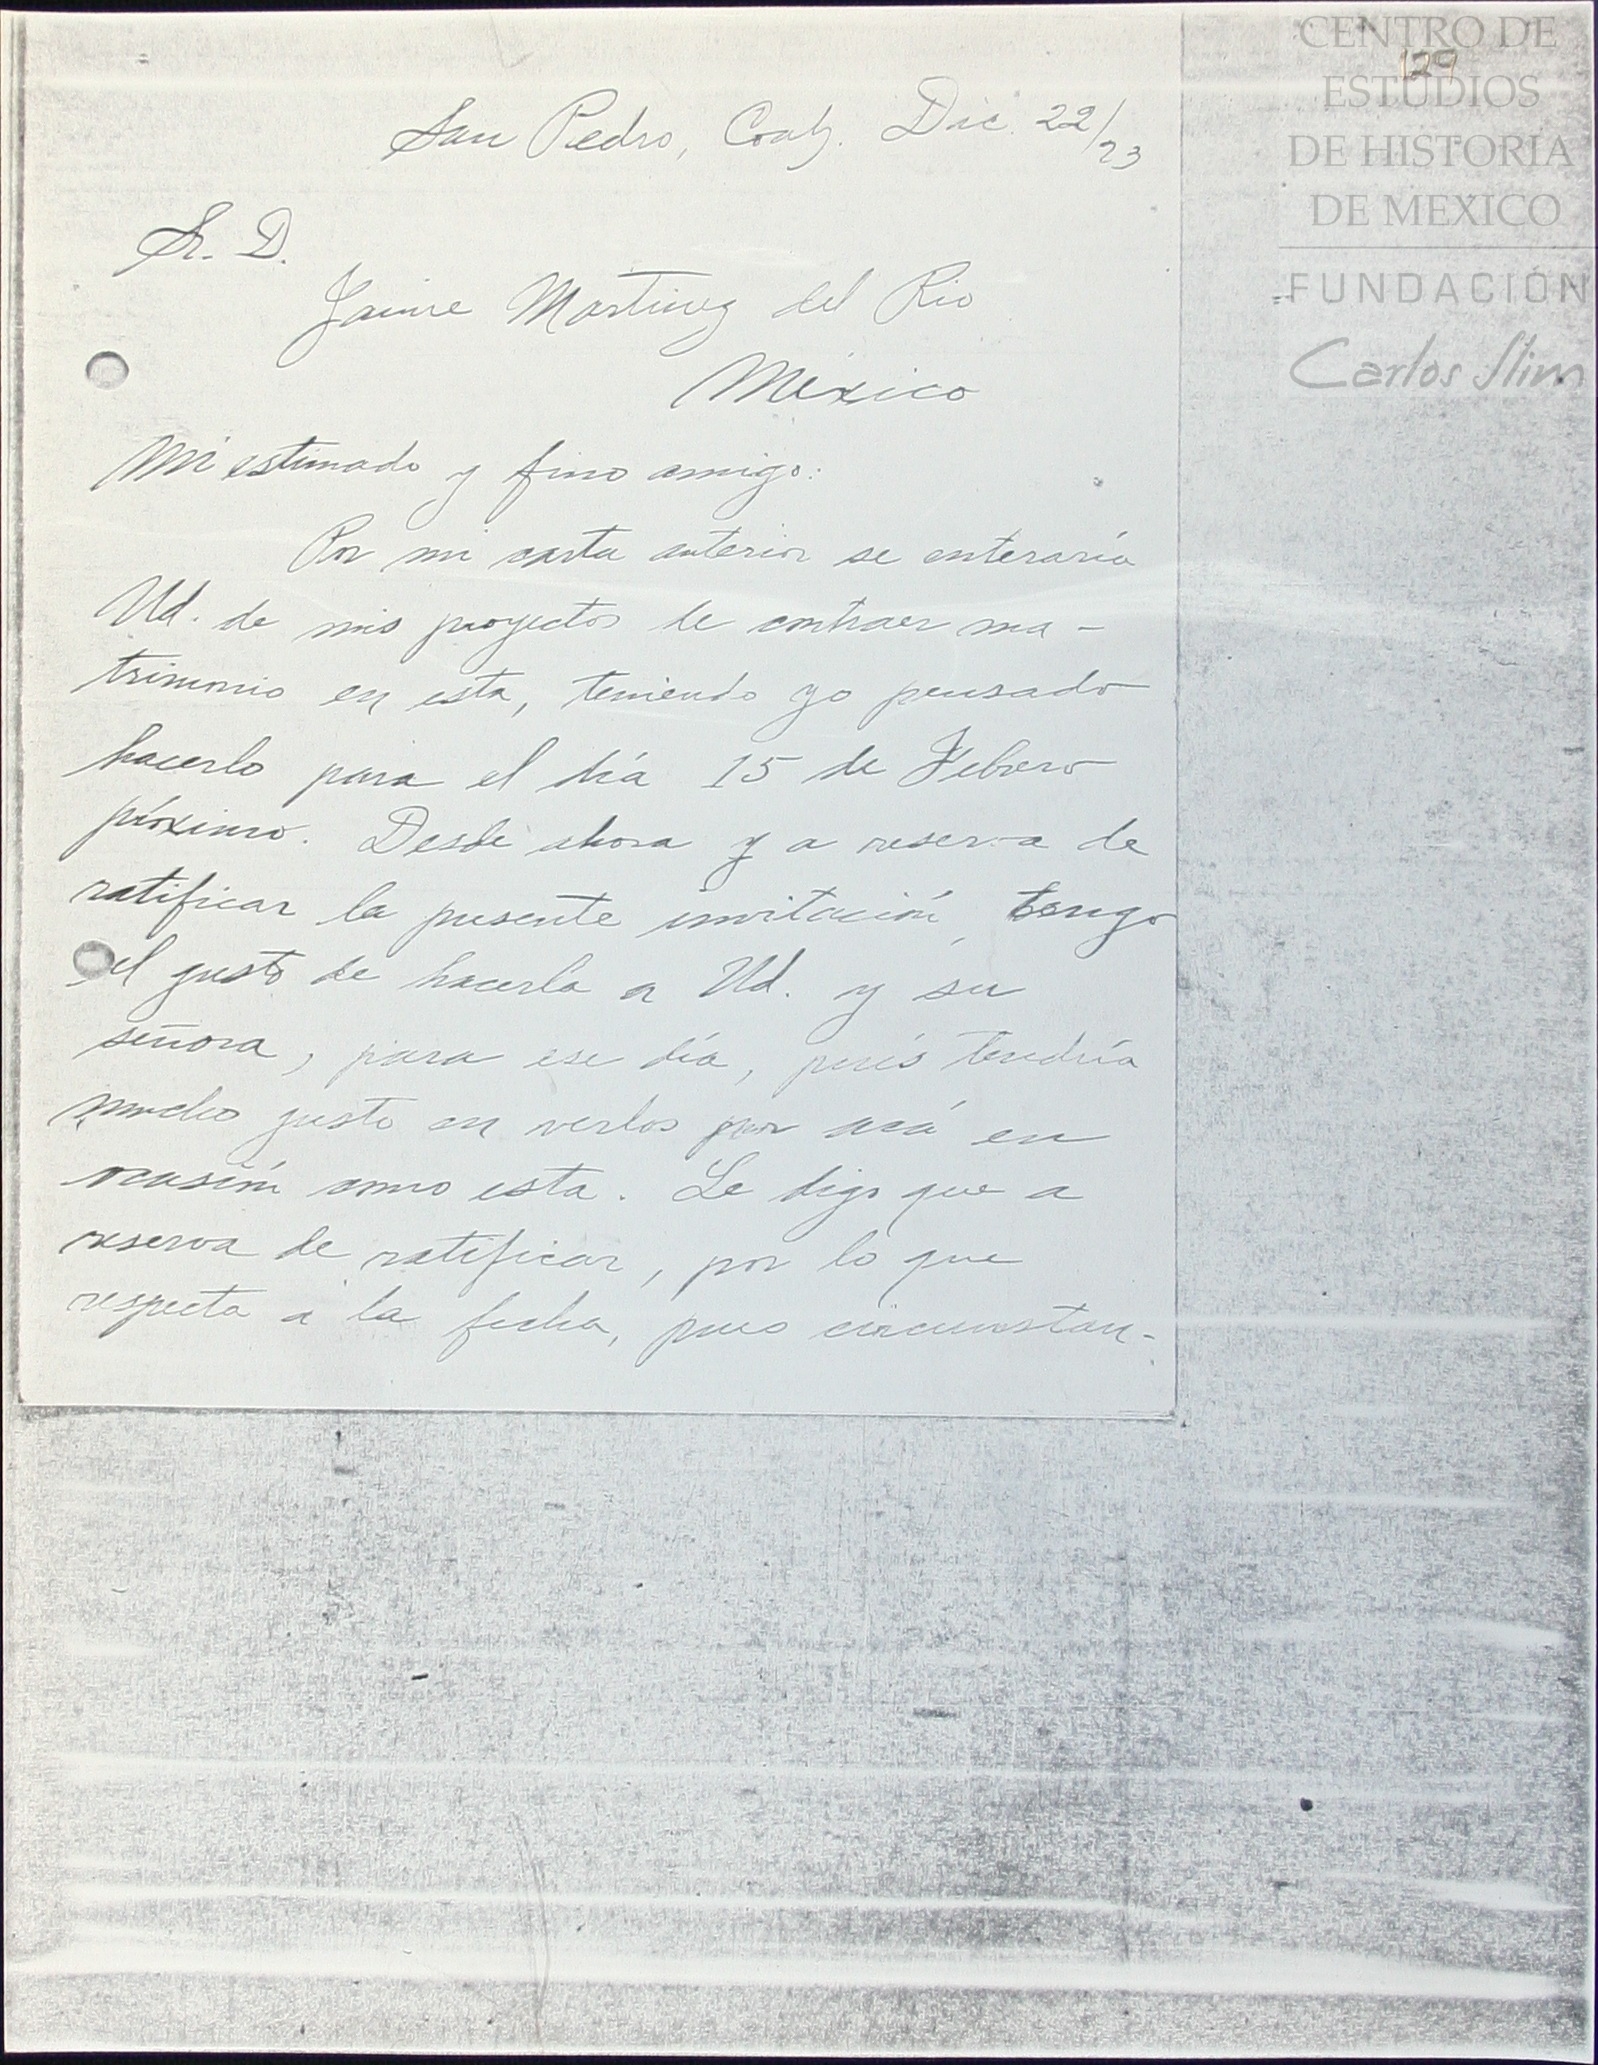 CENTRO DE
ESTUDIOS
DE HISTORIA
DE MEXICO
FUNDACIÓN
Carlos Slim
129
San Pedro, Coah. Dic. 22/23
Sr. D.
Jaime Martinez del Rio
México
Mi estimado y fino amigo:
Por mi carta anterior se enteraría
Ud. de mis proyectos de contraer ma-
trimonio en esta, teniendo yo pensado
hacerlo para el día 15 de Febrero
próximo. Desde ahora y a reserva de
ratificar la presente invitación, tengo
el gusto de hacerla a Ud. y su
señora, para ese día, pués tendría
mucho gusto en verlos por acá en
ocasión como esta. Le digo que a
reserva de ratificar, por lo que
respecta a la fecha, pues circunstan-